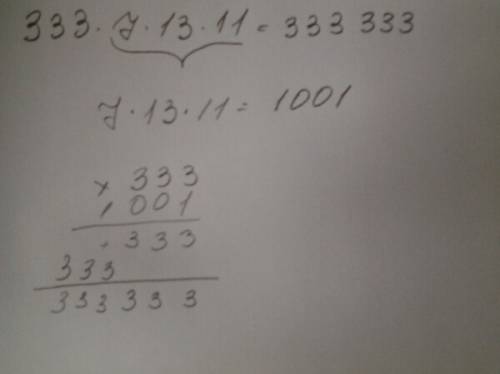 333 · 7 · 13 · 11 = 333 333
7 · 13 · 11 = 1001
× 333
1001
333
333
333 333